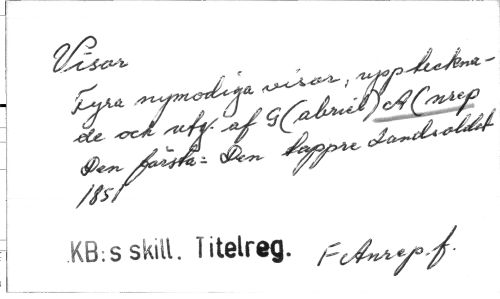 Visor
Fyra nymodiga visor, uppteckna-
de och utg. af G(abriel) A(nrep
Den första: Den tappre Landsoldat
1851
KB:s skill. Titelreg.
F Anrep. f.